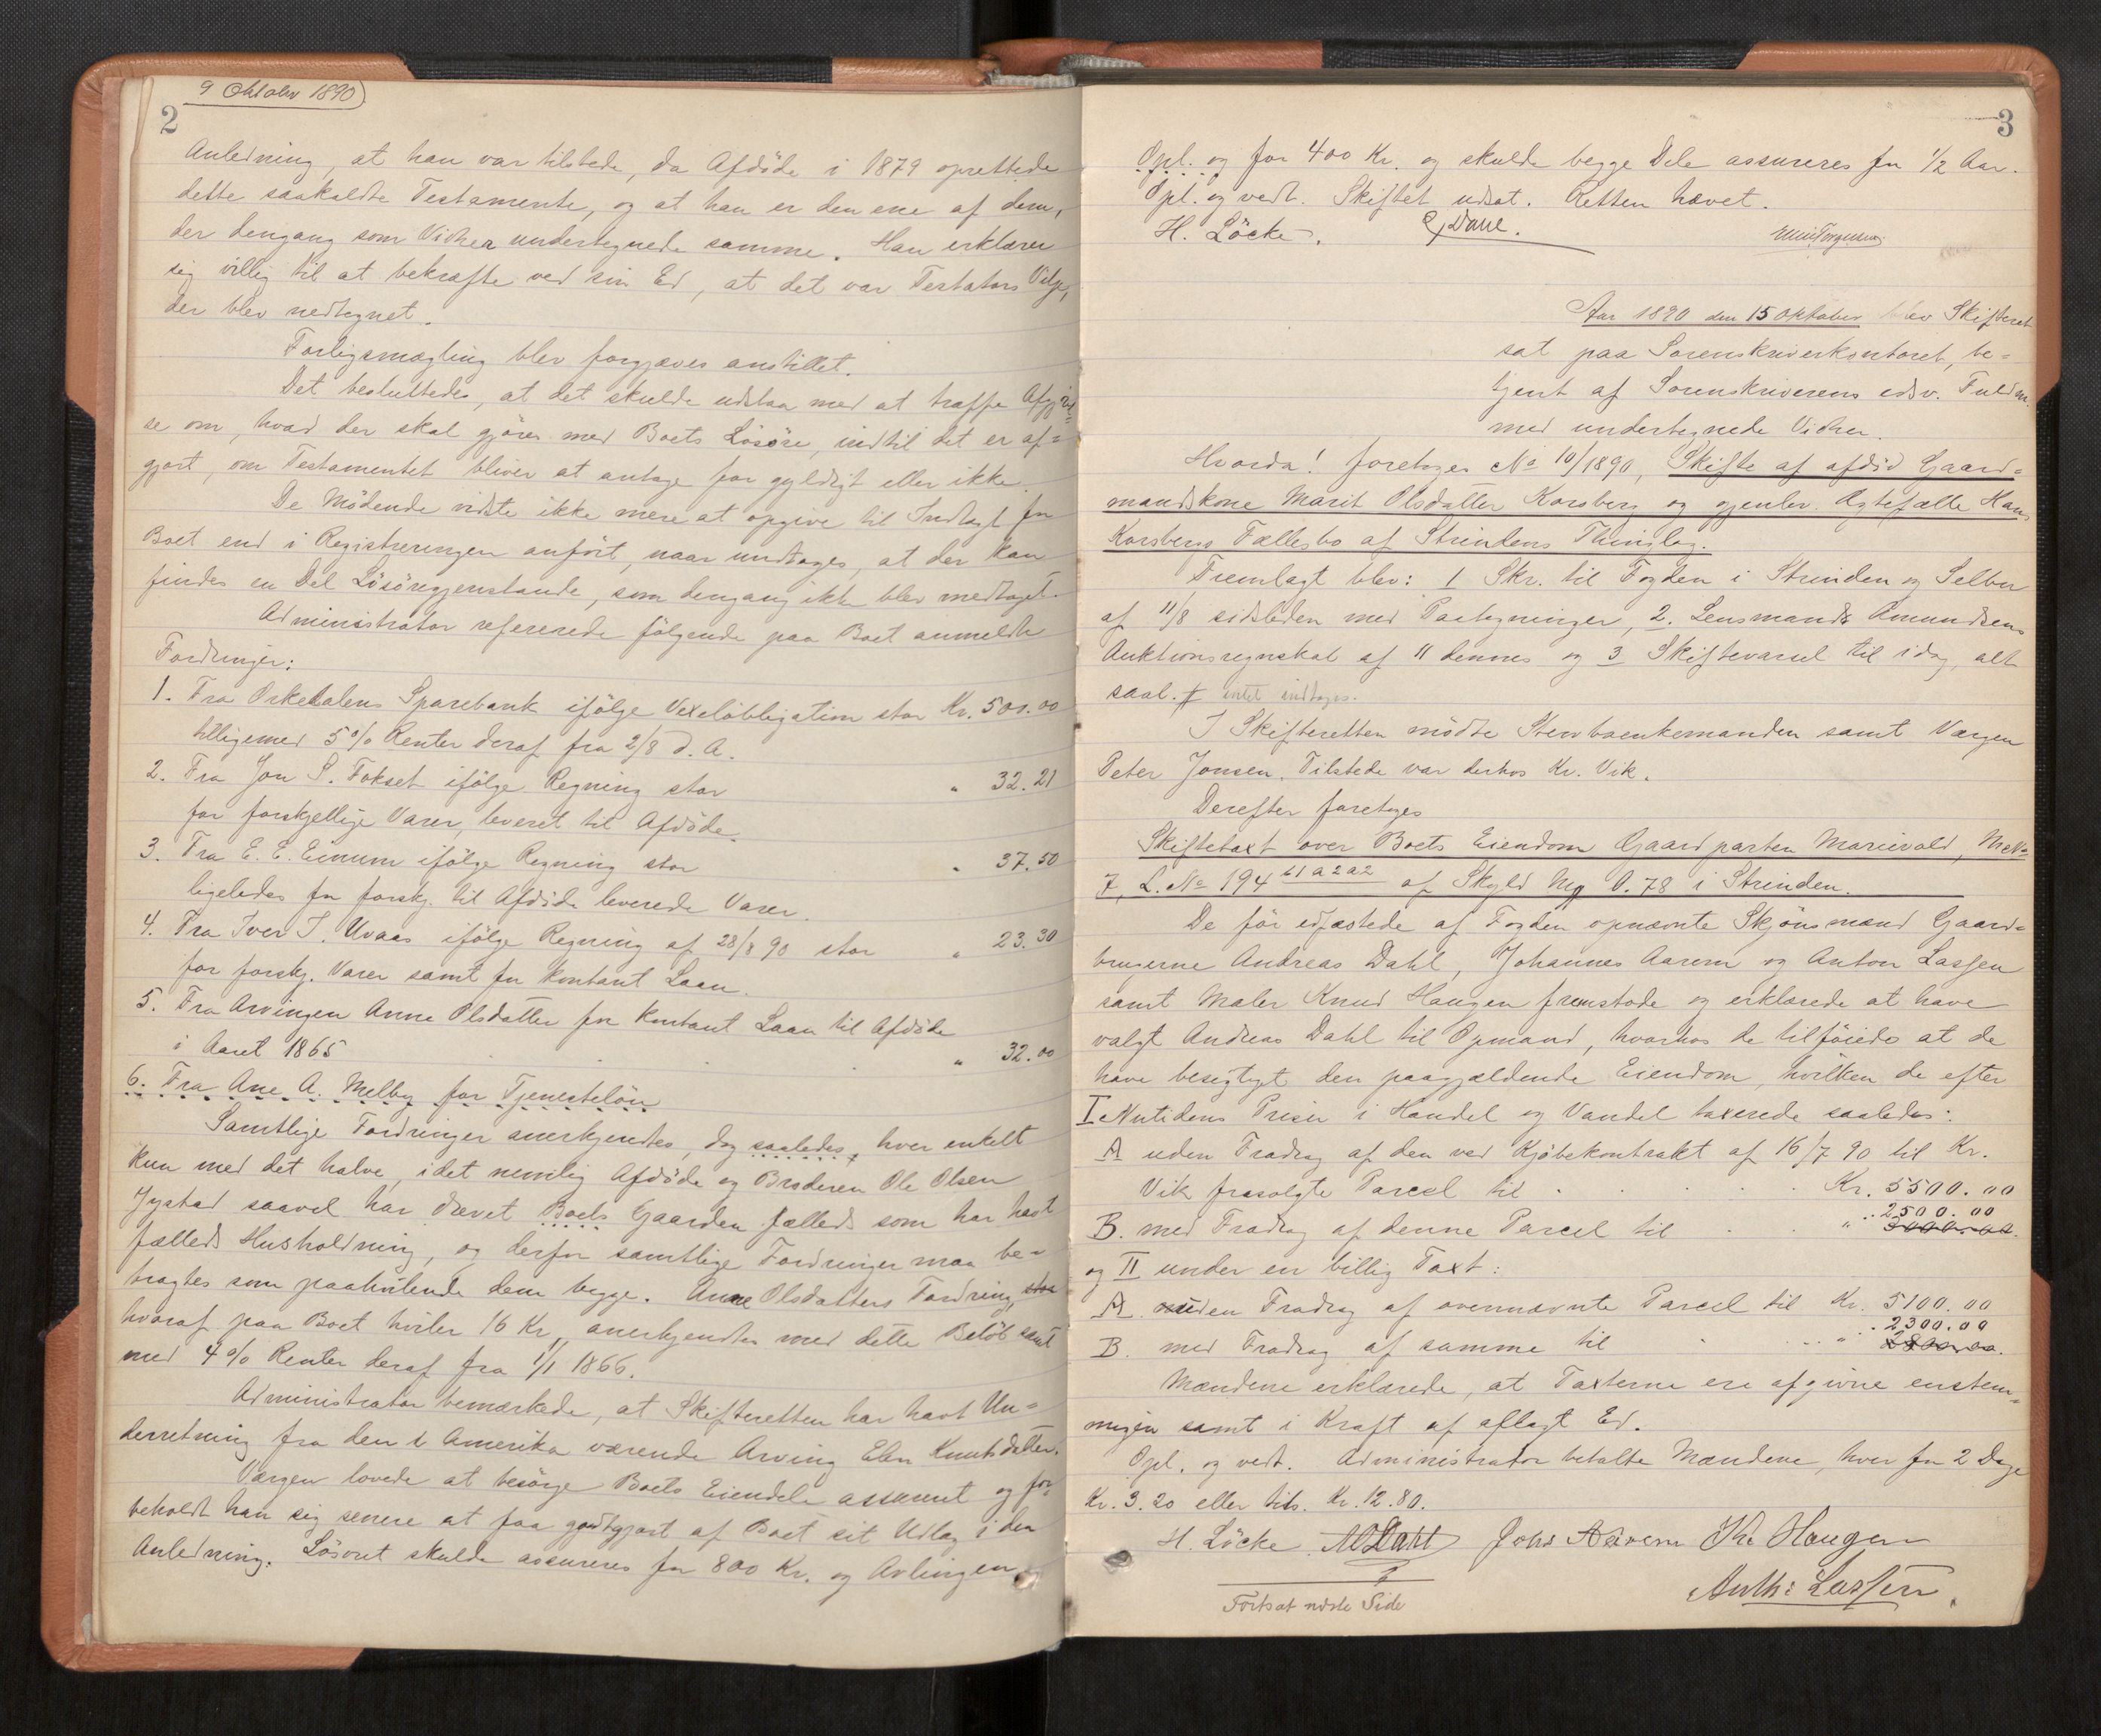 9 Oktober 1890
2
Anledning, at han var tilstede, da Afdöde i 1879 oprettede
dette saakaldte Testamente, og at han er den ene af dem,
der dengang som Vidner undertegnede samme. Han erklærer
sig villig til at bekræfte ved sin Ed, at det var Testators Vilje,
der blev nedtegnet.
Forligsmægling blev forgjæves anstillet.
Det besluttedes, at det skulde udstaa med at træffe Afgjörel=
se om, hvad der skal gjöres med Boets Lösöre, indtil det er af=
gjort, om Testamentet bliver at antage for gyldigt eller ikke.
De Mödende vidste ikke mere at opgive til Indtægt for
Boet end i Registreringen anfört, naar undtages, at der kan
findes en Del Lösöregjenstande, som dengang ikke blev medtaget.
Administrator refererede fölgende paa Boet anmeldte
Fordringer:
1. Fra Orkedalens Sparebank ifölge Vexelobligation stor Kr. 500.00
tilligemed 5% Renter deraf fra 2/8 d. A.
2. Fra Jon S. Fokset ifölge Regning stor " 32.21
for forskjellige Varer, leveret til Afdöde.
3. Fra E. E. Eimum ifölge Regning stor " 37.50
ligeledes for forskj. til Afdöde leverede Varer.
4. Fra Iver J. Uvaas ifölge Regning af 28/8 90 stor " 23.30
for forskj. Varer samt for kontant Laan.
5. Fra Arvingen Anne Olsdatter for kontant Laan til Afdöde
i Aaret 1865 " 32.00
6. Fra Ane A. Melby for Tjenestelön
Samtlige Fordringer anerkjendtes, dog saaledes, hver enkelt
kun med det halve, idet nemlig Afdöde og Broderen Ole Olsen
Jystad saavel har drevet Boets Gaarden fælleds som har havt
fælleds Husholdning, og derfor samtlige Fordringer maa be=
tragtes som paahvilende dem begge. Anne Olsdatters Fordring, stor
hvoraf paa Boet hviler 16 Kr, anerkjendtes med dette Belöb samt
med 4% Renter deraf fra 1/1 1866.
Administrator bemærkede, at Skifteretten har havt Un=
derretning fra den i Amerika værende Arving Elen Knutsdatter.
Værgen lovede at besörge Boets Eiendele assureret og for=
beholdt han sig senere at faa godtgjort af Boet sit Udlæg i den
Anledning. Lösöret skulde assureres for 800 Kr. og Avlingen
3
Opl. og for 400 Kr. og skulde begge Dele assureres for 1/2 Aar.
Opl. og vedt. Skiftet udsat. Retten hævet.
H. Löcke. E Dahl.
Aar 1890 den 15 Oktober blev Skifteret
sat paa Sorenskriverkontoret, be=
tjent af Sorenskriverens edsv. Fuldm.
med undertegnede Vidner.
Hvorda! foretoges No 10/1890, Skifte af afdöd Gaard=
mandskone Marit Olsdatter Korsberg og gjenlev. Ægtefælle Hans
Korsbergs Fællesbo af Strindens Thinglag.
Fremlagt blev: 1 Skr. til Fogden i Strinden og Selbu
af 11/8 sidstleden med Paategninger, 2. Lensmands Amundsens
Auktionsregnskab af 11 dennes og 3 Skiftevarsel til idag, alt
saal. # intet indtages.
I Skifteretten mödte Stervboenkemanden samt Værgen
Peter Jonsen. Tilstede var derhos Kr. Vik.
Derefter foretoges
Skiftetaxt over Boets Eiendom Gaardparten Marievold, M No
7, L. No 194 61 a 2 a 2 af Skyld Mg 0.78 i Strinden.
De för edfæstede af Fogden opnævnte Skjönsmænd Gaard=
brugerne Andreas Dahl, Johannes Aarem og Anton Lassen
samt Maler Knud Haugen fremstode og erklærede at have
valgt Andreas Dahl til Opmand, hvorhos de tilföiede at de
have besigtyget den paagjældende Eiendom, hvilken de efter
I Nutidens Priser i Handel og Vandel taxerede saaledes:
A uden Fradrag af den ved Kjöbekontrakt af 16/7 90 til Kr.
Vik frasolgte Parcel til Kr. 5500.00
B. med Fradrag af denne Parcel til " 3000.00. 2500.00
og II under en billig Taxt:
A uden Fradrag af ovennævnte Parcel til Kr. 5100.00
B. med Fradrag af samme til " 2800.00. 2300.00
Mændene erklærede, at Taxterne ere afgivne enstem=
migen samt i Kraft af aflagt Ed.
Opl. og vedt. Administrator betalte Mændene, hver for 2 Dage
Kr. 3.20 eller tils. Kr. 12.80.
H. Löcke A Dahl Johs Aarem Kn Haugen
Anth: Lassen.
Fortsat næste Side